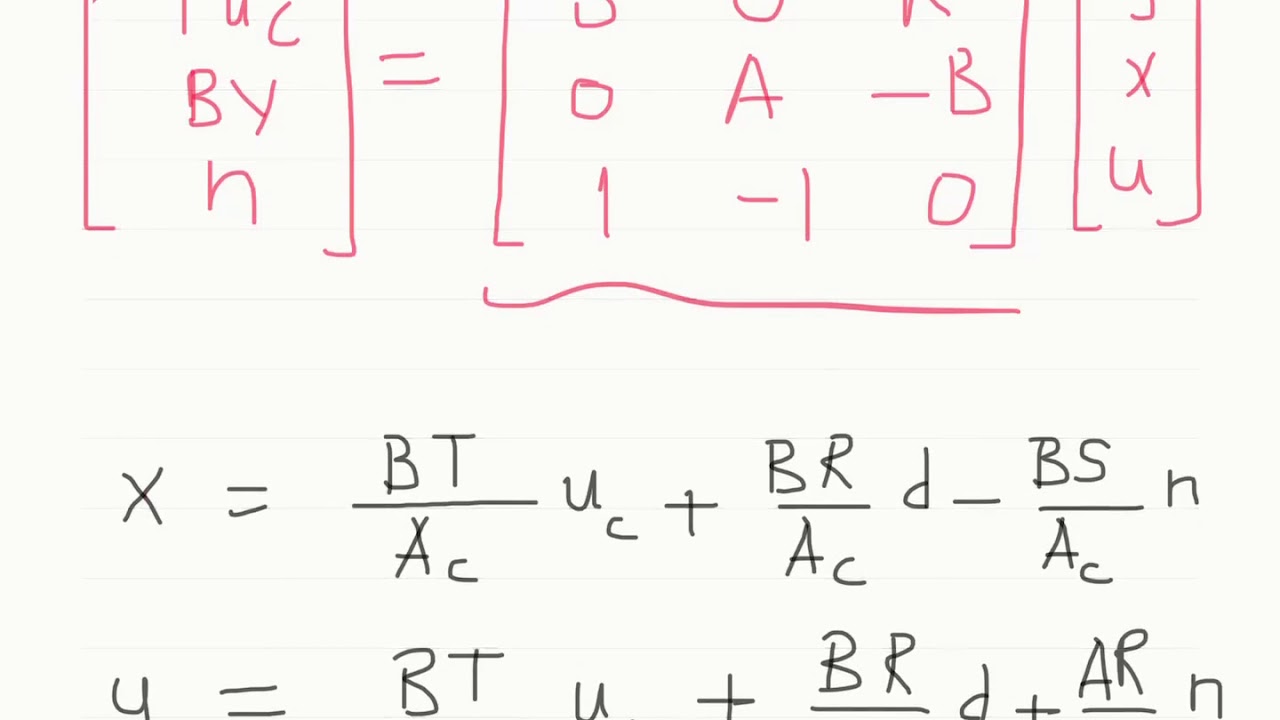 u_c = 0 R
By = 0 A -B x
n 1 -1 0 u
x = BT/A_c u_c + BR/A_c d - BS/A_c n
y = BT u + BR d + AR n